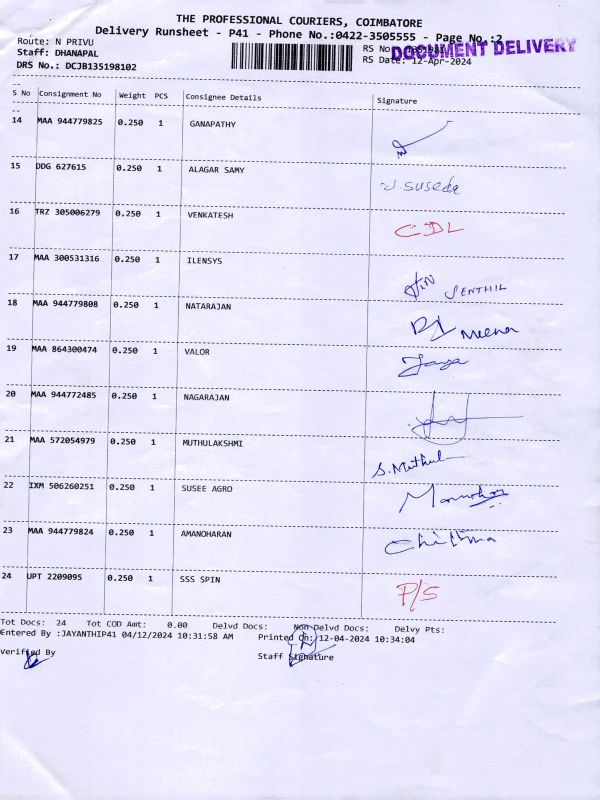 THE PROFESSIONAL COURIERS, COIMBATORE
Delivery Runsheet - P41 - Phone No.:0422-3505555 - Page No.:2
Route: N PRIVU
RS No
DOCUMENT DELIVERY
Staff: DHANAPAL
RS Date: 12-Apr-2024
DRS No.: DCJB135198102
S No Consignment No Weight PCS Consignee Details Signature
14 MAA 944779825 0.250 1 GANAPATHY
15 DDG 627615 0.250 1 ALAGAR SAMY
16 TRZ 305006279 0.250 1 VENKATESH CDL
17 MAA 300531316 0.250 1 ILENSYS SENTHIL
18 MAA 944779808 0.250 1 NATARAJAN Meena
19 MAA 864300474 0.250 1 VALOR Jaya
20 MAA 944772485 0.250 1 NAGARAJAN
21 MAA 572054979 0.250 1 MUTHULAKSHMI S.Muthul
22 IXM 506260251 0.250 1 SUSEE AGRO
23 MAA 944779824 0.250 1 AMANOHARAN
24 UPT 2209095 0.250 1 SSS SPIN P/S
Tot Docs: 24 Tot COD Amt: 0.00 Delvd Docs: Non Delvd Docs: Delvy Pts:
Entered By :JAYANTHIP41 04/12/2024 10:31:58 AM Printed On: 12-04-2024 10:34:04
Verified By
Staff Signature